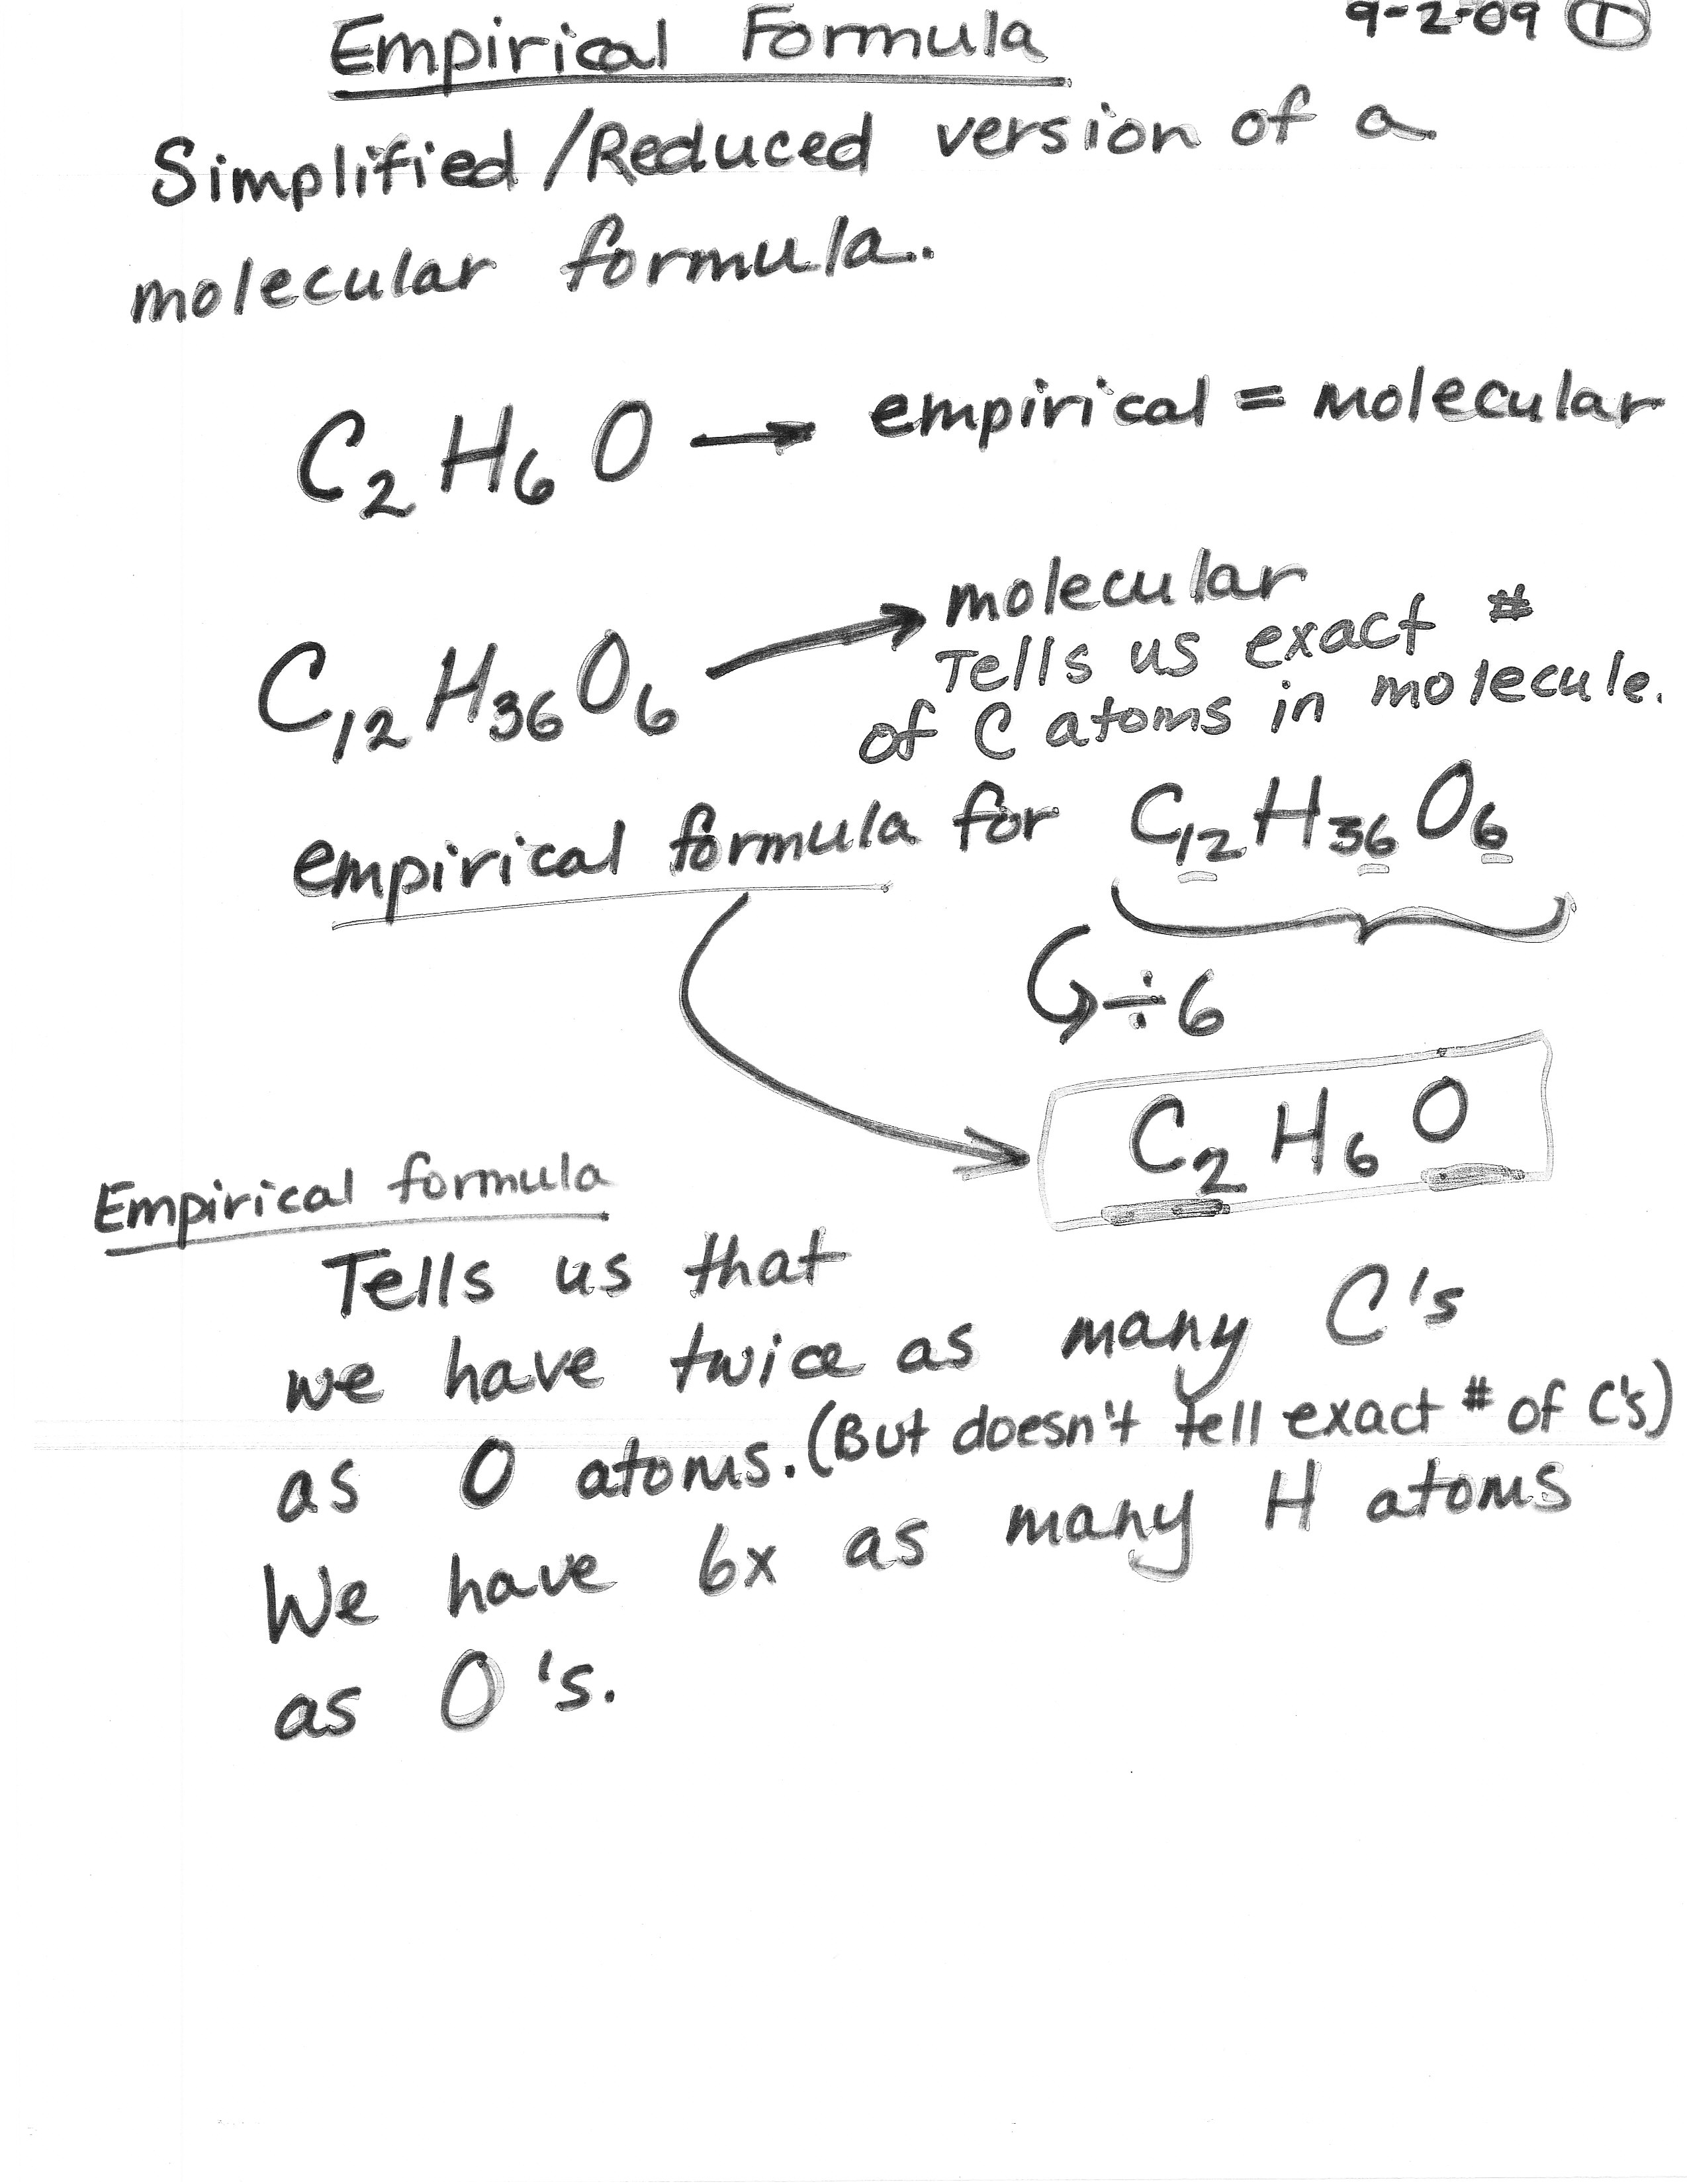 9-2-09 1
Empirical Formula
Simplified/Reduced version of a
molecular formula.
C₂H₆O → empirical = molecular
C₁₂H₃₆O₆ → molecular
Tells us exact #
of C atoms in molecule.
empirical formula for C₁₂H₃₆O₆
÷6
C₂H₆O
Empirical formula
Tells us that
we have twice as many C's
as O atoms. (But doesn't tell exact # of C's)
We have 6x as many H atoms
as O's.